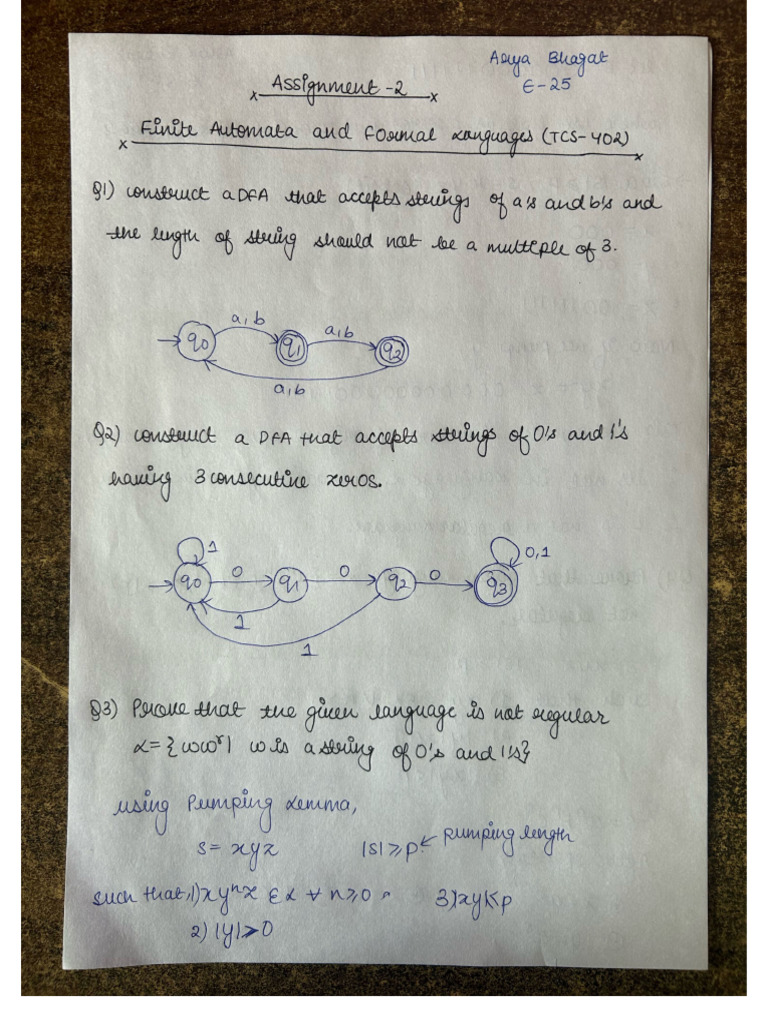 Assignment-2
Arya Bhagat
E-25
Finite Automata and Formal Languages (TCS-402)
Q1) construct a DFA that accepts strings of a's and b's and
the length of string should not be a multiple of 3.
a,b
a,b
q0
q1
q2
a,b
Q2) construct a DFA that accepts strings of 0's and 1's
having 3 consecutive zeros.
1
0,1
0
0
0
q0
q1
q2
q3
1
1
Q3) Prove that the given language is not regular
L={ωωʳ| ω is a string of 0's and 1's}
using Pumping Lemma,
s= xyz |s|≥p. ← pumping length
such that,1)xyⁿz ∈ L ∀ n≥0 3)|xy|≤p
2) |y|>0